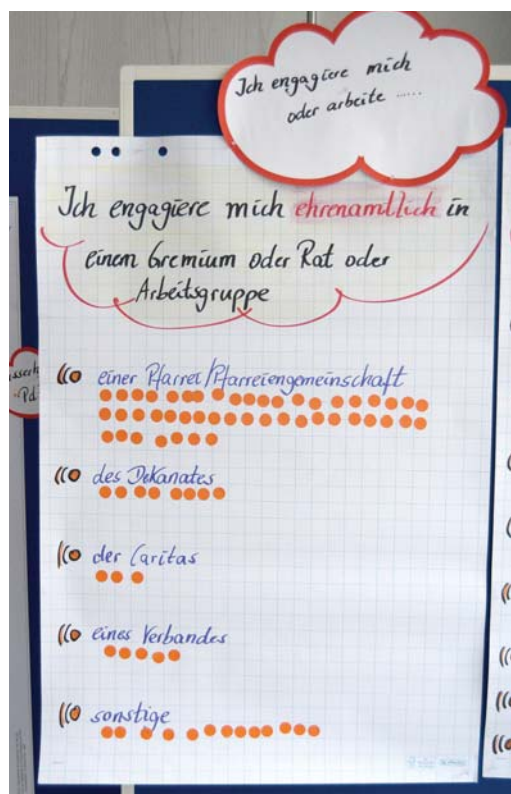 Ich engagiere mich
oder arbeite .....
Ich engagiere mich ehrenamtlich in
einem Gremium oder Rat oder
Arbeitsgruppe
einer Pfarrei/Pfarreiengemeinschaft
des Dekanates
der Caritas
eines Verbandes
sonstige